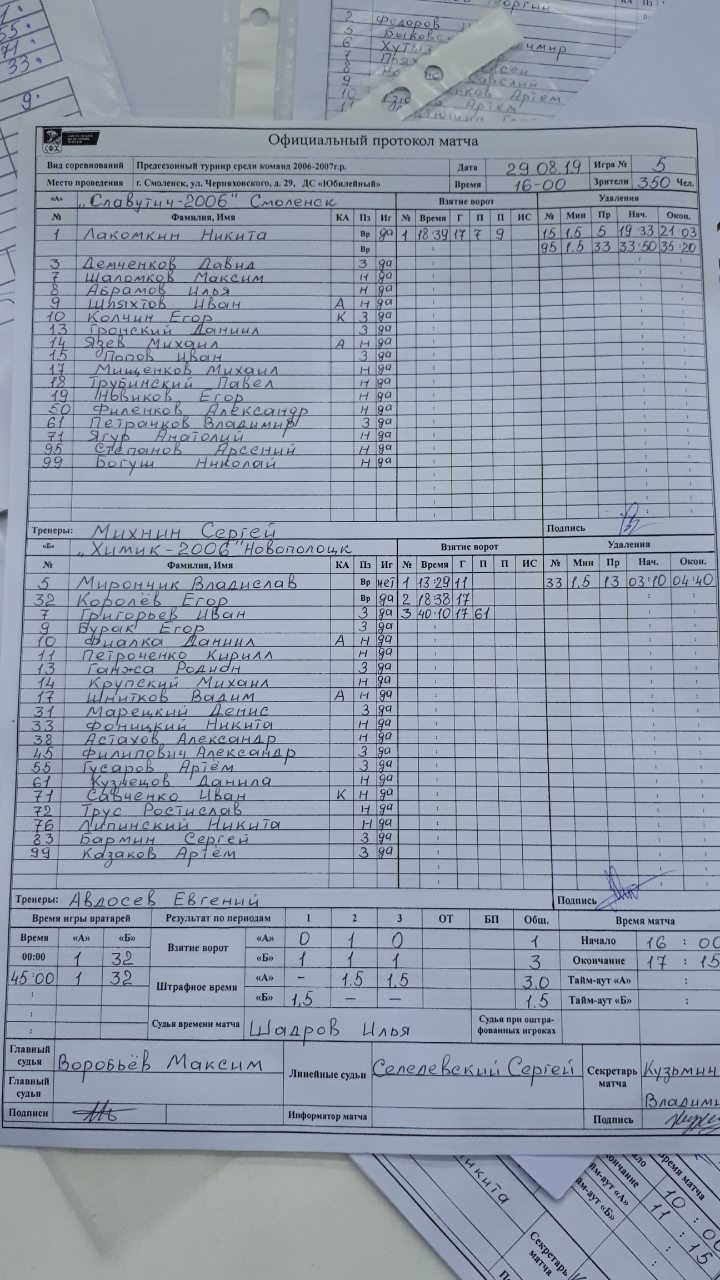 Официальный протокол матча
Вид соревнований Предсезонный турнир среди команд 2006-2007г.р. Дата 29.08.19 Игра № 5
Место проведения г. Смоленск, ул. Черняховского, д. 29, ДС «Юбилейный» Время 16-00 Зрители 350 Чел.
«А» „Славутич-2006" Смоленск Взятие ворот Удаления
№ Фамилия, Имя КА Пз Иг № Время Г П П ИС № Мин Пр Нач. Окон.
1 Лакомкин Никита Вр да 1 18:39 17 7 9 15 1.5 5 19:33 21:03
Вр 95 1.5 33 33:50 35:20
3 Демченков Давид З да
7 Шаломков Максим Н да
8 Абрамов Илья Н да
9 Шпяхтов Иван А Н да
10 Колчин Егор К З да
13 Гронский Даниил З да
14 Язев Михаил А Н да
15 Попов Иван З да
17 Мищенков Михаил Н да
18 Трубинский Павел Н да
19 Новиков Егор Н да
50 Филенков Александр Н да
61 Петрачков Владимир З да
71 Ягур Анатолий Н да
95 Степанов Арсений Н да
99 Богуш Николай Н да
Тренеры: Михнин Сергей Подпись
«Б» „Химик-2006" Новополоцк Взятие ворот Удаления
№ Фамилия, Имя КА Пз Иг № Время Г П П ИС № Мин Пр Нач. Окон.
5 Мирончик Владислав Вр нет 1 13:29 11 33 1.5 13 03:10 04:40
32 Королёв Егор Вр да 2 18:38 17
7 Григорьев Иван З да 3 40:10 17 61
9 Бурак Егор З да
10 Фиалка Даниил А Н да
11 Петроченко Кирилл Н да
13 Ганжа Родион З да
14 Крупский Михаил Н да
17 Шнитков Вадим А Н да
31 Марецкий Денис З да
33 Фоницкий Никита Н да
38 Астахов Александр Н да
45 Филипович Александр З да
55 Гусаров Артём З да
61 Кузнецов Данила Н да
71 Савченко Иван К Н да
72 Трус Ростислав Н да
76 Липинский Никита Н да
83 Бармин Сергей З да
99 Казаков Артём З да
Тренеры: Авдосев Евгений Подпись
Время игры вратарей Результат по периодам 1 2 3 ОТ БП Общ. Время матча
Время «А» «Б» Взятие ворот «А» 0 1 0 1 Начало 16 : 00
00:00 1 32 «Б» 1 1 1 3 Окончание 17 : 15
45:00 1 32 Штрафное время «А» – 1.5 1.5 3.0 Тайм-аут «А» :
«Б» 1,5 – – 1.5 Тайм-аут «Б» :
Судья времени матча Шадров Илья Судья при оштрафованных игроках
Главный судья Воробьёв Максим Линейные судьи Селедевский Сергей Секретарь матча Кузьмич
Главный судья Владими
Подписи Информатор матча Подпись